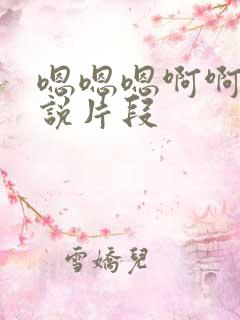 嗯嗯嗯啊啊
說片段
雪嬌兒